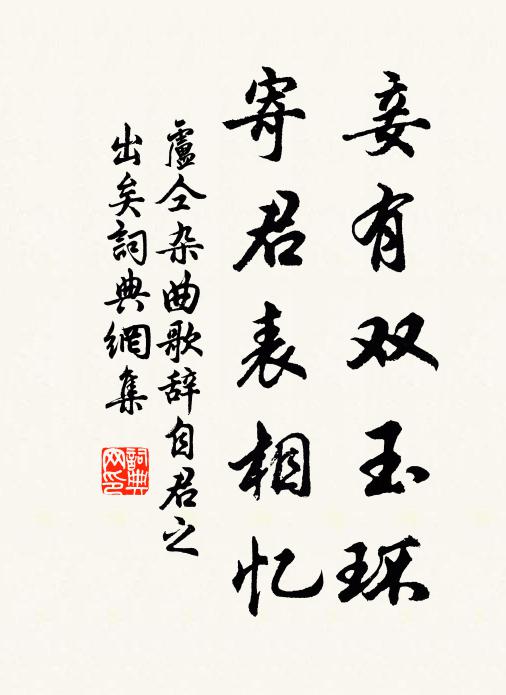 妾有双玉环
寄君表相忆
盧仝杂曲歌辞自君之
出矣詞典網集
詞典
网印